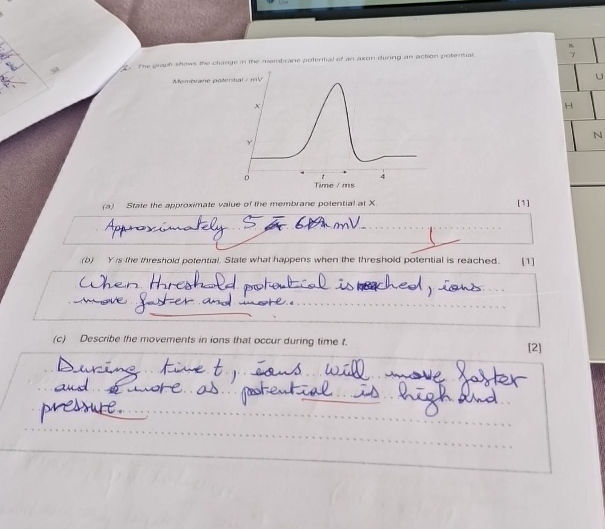 The graph shows the change in the membrane potential of an axon during an action potential.
Membrane potential / mV
X
Y
0
t
4
Time / ms
(a) State the approximate value of the membrane potential at X. [1]
Approximately 5 mV.
(b) Y is the threshold potential. State what happens when the threshold potential is reached. [1]
When threshold potential is reached, ions
move faster and more.
(c) Describe the movements in ions that occur during time t. [2]
During time t, ions will move faster
and more as potential is high and
pressure.
&
7
U
H
N